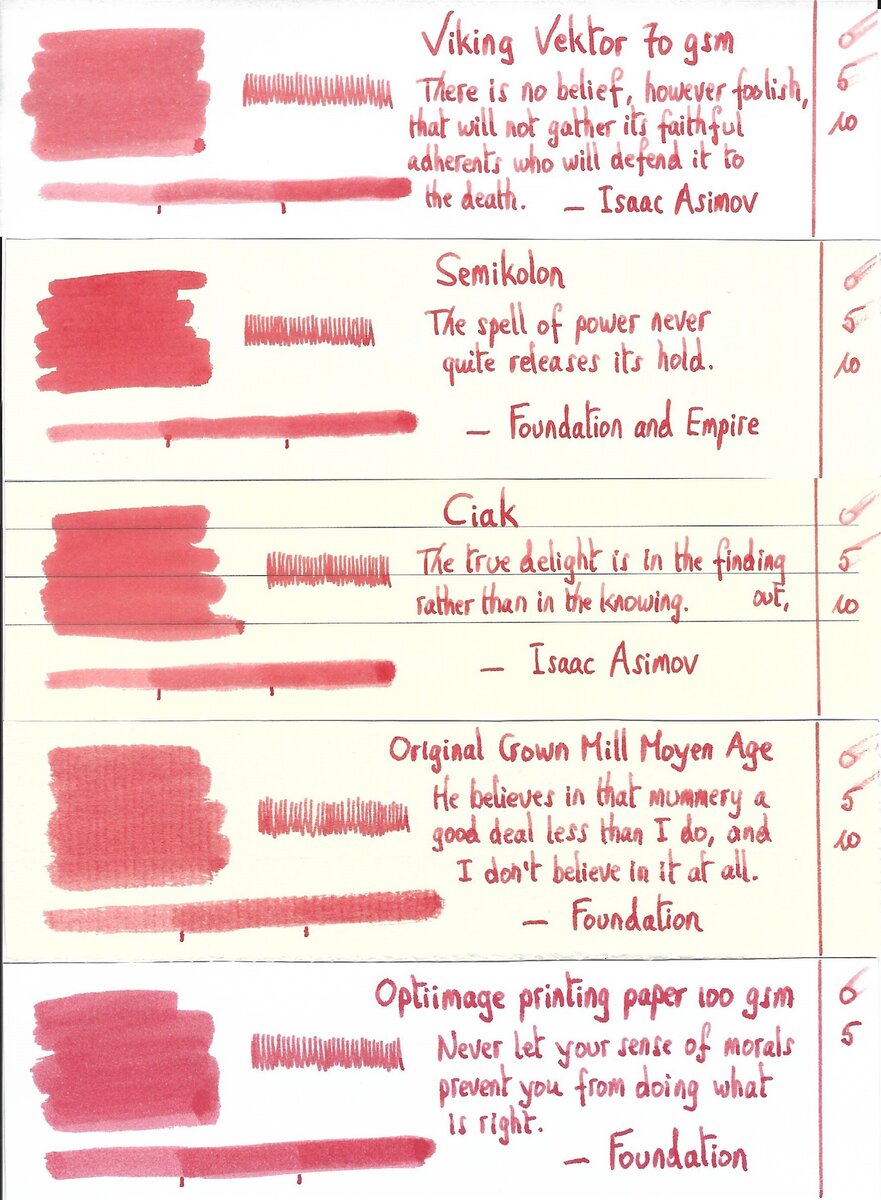 Viking Vektor 70 gsm
There is no belief, however foolish,
that will not gather its faithful
adherents who will defend it to
the death. — Isaac Asimov
0
5
10
Semikolon
The spell of power never
quite releases its hold.
— Foundation and Empire
0
5
10
Ciak
The true delight is in the finding
out,
rather than in the knowing.
— Isaac Asimov
0
5
10
Original Crown Mill Moyen Age
He believes in that mummery a
good deal less than I do, and
I don't believe in it at all.
— Foundation
0
5
10
Optiimage printing paper 100 gsm
Never let your sense of morals
prevent you from doing what
is right.
— Foundation
0
5